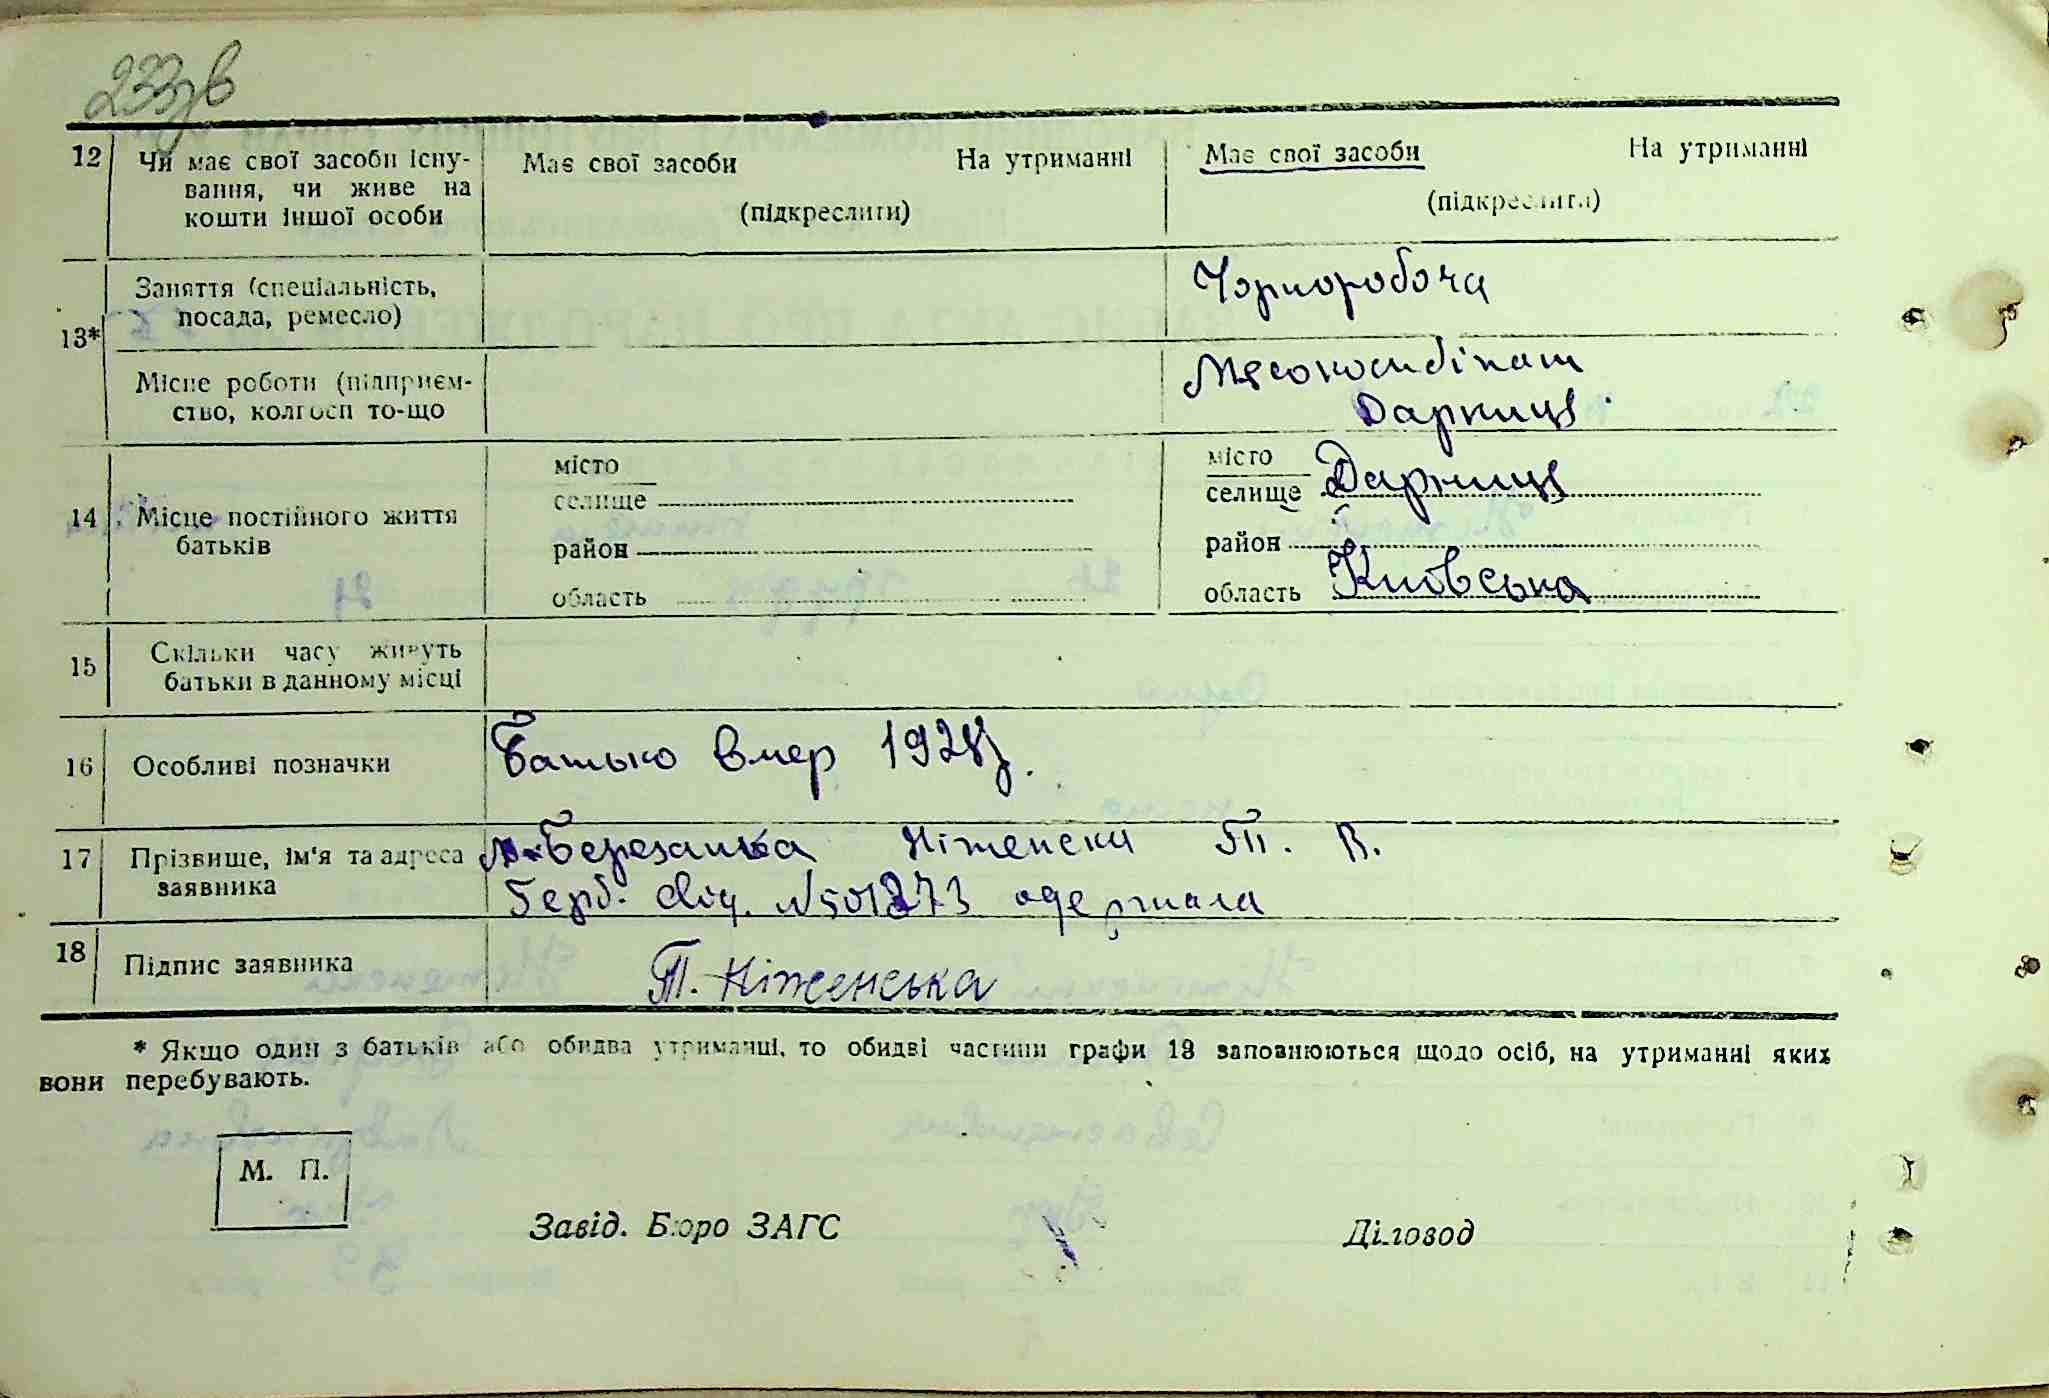 233зв
12 Чи має свої засоби існу- Має свої засоби На утриманні Має свої засоби На утриманні
вання, чи живе на
кошти іншої особи (підкреслити) (підкреслити)
13* Заняття (спеціальність, Чорноробоча
посада, ремесло)
Місце роботи (підприєм- Мясокомбінат
ство, колгосп то-що Дарниця
14 Місце постійного життя місто місто
батьків селище селище Дарниця
район район
область область Київська
15 Скільки часу живуть
батьки в данному місці
16 Особливі позначки Батько вмер 1928р.
17 Прізвище, ім'я та адреса м. Березанька Ніженськ П. В.
заявника Герб. свід. №501273 одержала
18 Підпис заявника П. Ніженська
* Якщо один з батьків або обидва утриманці, то обидві частини графи 13 заповнюються щодо осіб, на утриманні яких
вони перебувають.
М. П.
Завід. Бюро ЗАГС Діловод